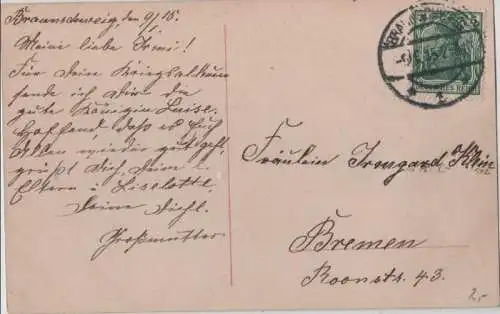 Braunschweig den 9/15.
Meine liebe Irmi!
Für Dein Kriegsalbum
sende ich Dir die
gute Königin Luise.
Hoffend, dass es Euch
Allen wieder gut geht,
grüßt Dich, Deine l.
Eltern u. Liselotte
Deine Dichl.
Großmutter
Fräulein Irmgard Klein
Bremen
Roonstr. 43.
2,-